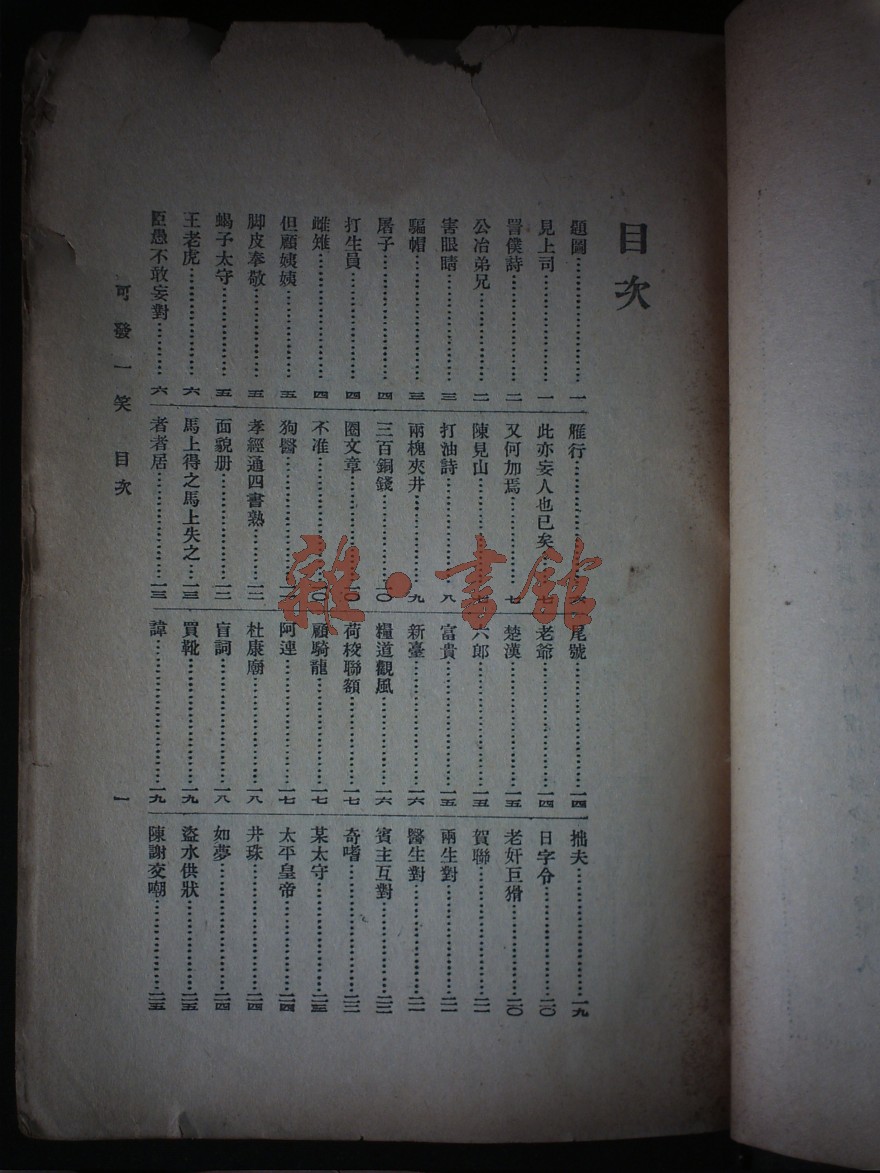 目次
題圖……一
見上司……一
詈僕詩……二
公冶弟兄……二
害眼睛……三
驅帽……三
屠子……四
打生員……四
雌雉……四
但顧姨姨……五
脚皮奉敬……五
蝎子太守……五
王老虎……六
臣愚不敢妄對……六
雁行……
此亦妄人也已矣……七
又何加焉……七
陳見山……七
打油詩……八
兩槐夾井……九
三百銅錢……一〇
圈文章……一〇
不准……一〇
狗醫……
孝經通四書熟……一二
面貌册……一二
馬上得之馬上失之……一三
者者居……一三
尾號……一四
老爺……一四
楚漢……一五
六郎……一五
富貴……一五
新臺……一六
糧道觀風……一六
荷校聯額……一七
顧騎龍……一七
阿連……一七
杜康廟……一八
盲詞……一八
買靴……一九
諱……一九
拙夫……一九
日字令……二〇
老奸巨猾……二〇
賀聯……二一
兩生對……二一
醫生對……二一
賓主互對……二二
奇嗜……二二
某太守……二三
太平皇帝……二四
井珠……二四
如夢……二四
盜水供狀……二五
陳謝交嘲……二五
可發一笑 目次
一
雜·書館